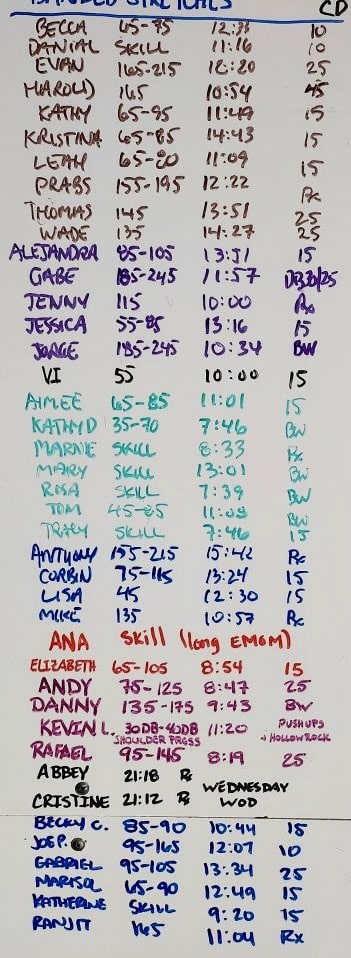 BANDED STRETCHES CD
BECCA 65-85 12:35 10
DANIAL SKILL 11:16 10
EVAN 165-215 12:20 25
HAROLD 165 10:54 45
KATHY 65-95 11:49 15
KRISTINA 65-85 14:43 15
LEAH 65-80 11:09 15
PRABS 155-195 12:22 Rx
THOMAS 145 13:51 25
WADE 135 14:27 25
ALEJANDRA 85-105 13:51 15
GABE 185-245 11:57 DB30/25
JENNY 115 10:00 Rx
JESSICA 55-85 13:16 15
JORGE 185-245 10:34 BW
VI 55 10:00 15
AIMEE 65-85 11:01 15
KATHY D 35-70 7:46 BW
MARNIE SKILL 8:33 Rx
MARY SKILL 13:01 BW
RISA SKILL 7:39 BW
TOM 45-65 11:09 BW
TRACY SKILL 7:46 15
ANTHONY 155-215 15:42 Rx
CORBIN 75-115 13:24 15
LISA 45 12:30 15
MIKE 135 10:57 Rx
ANA Skill (long EMOM)
ELIZABETH 65-105 8:54 15
ANDY 75-125 8:47 25
DANNY 135-175 9:43 BW
KEVIN L. 30DB-40DB 11:20 PUSHUPS
SHOULDER PRESS + HOLLOW ROCK
RAFAEL 95-145 8:19 25
ABBEY 21:18 Rx WEDNESDAY
CRISTINE 21:12 Rx WOD
BECKY C. 85-90 10:44 15
JOE P. 95-165 12:07 10
GABRIEL 95-105 13:34 25
MARISOL 65-90 12:49 15
KATHERINE SKILL 9:20 15
RANJIT 165 11:04 Rx